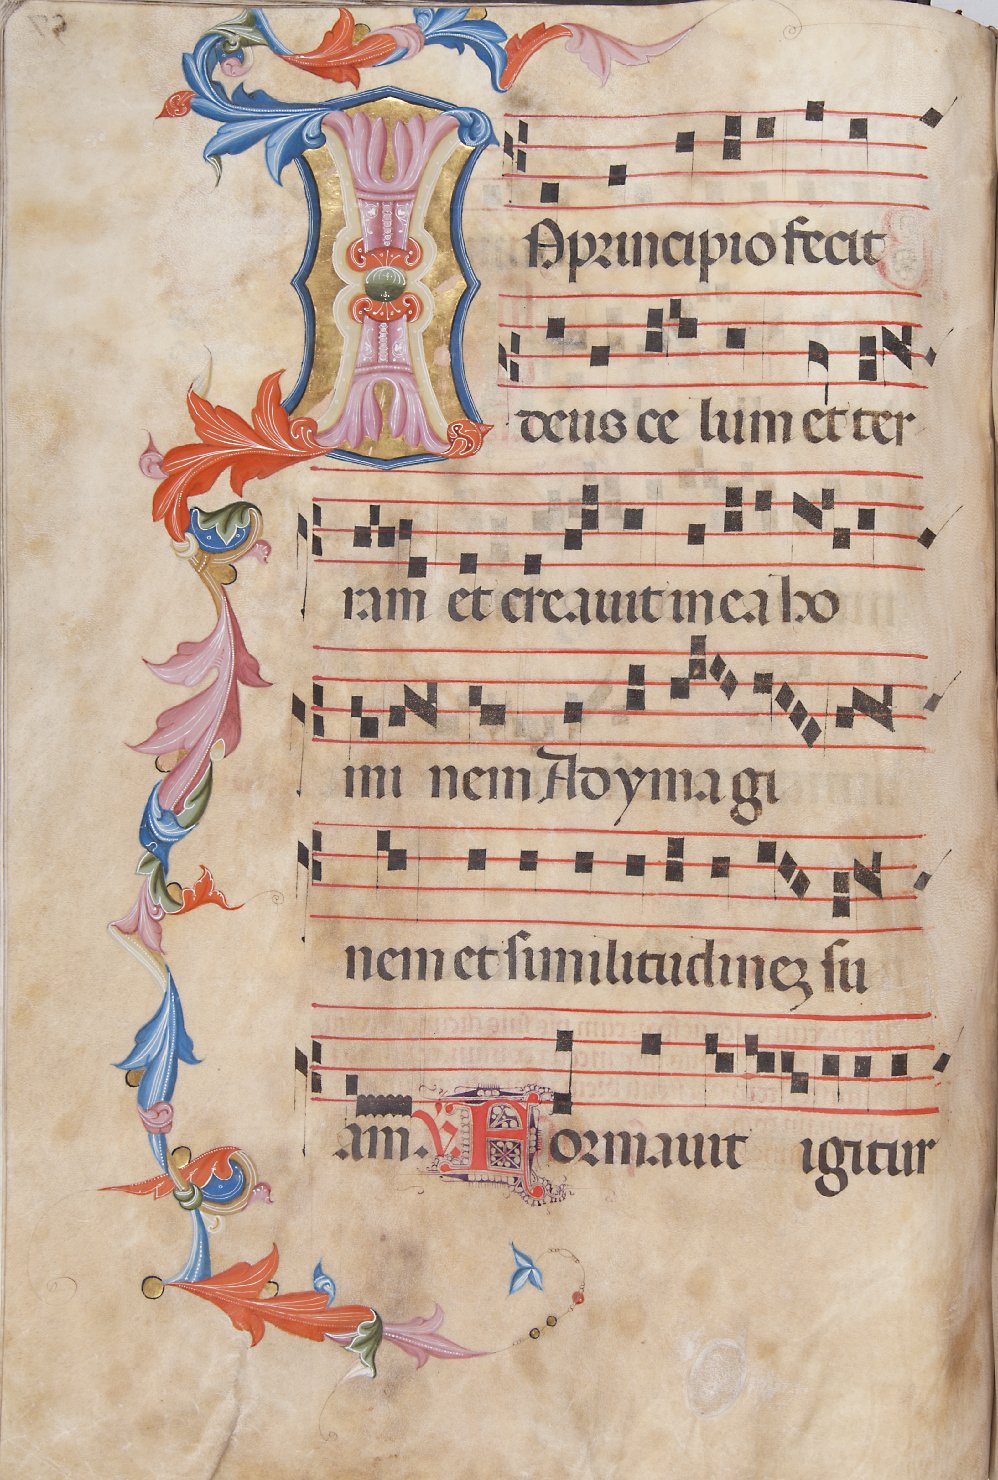 IN principio fecit
deus ce lum et ter
ram et creauit in ea ho
mi nem Ad ymagi
nem et similitudineʒ su
am. ℣ Formauit igitur